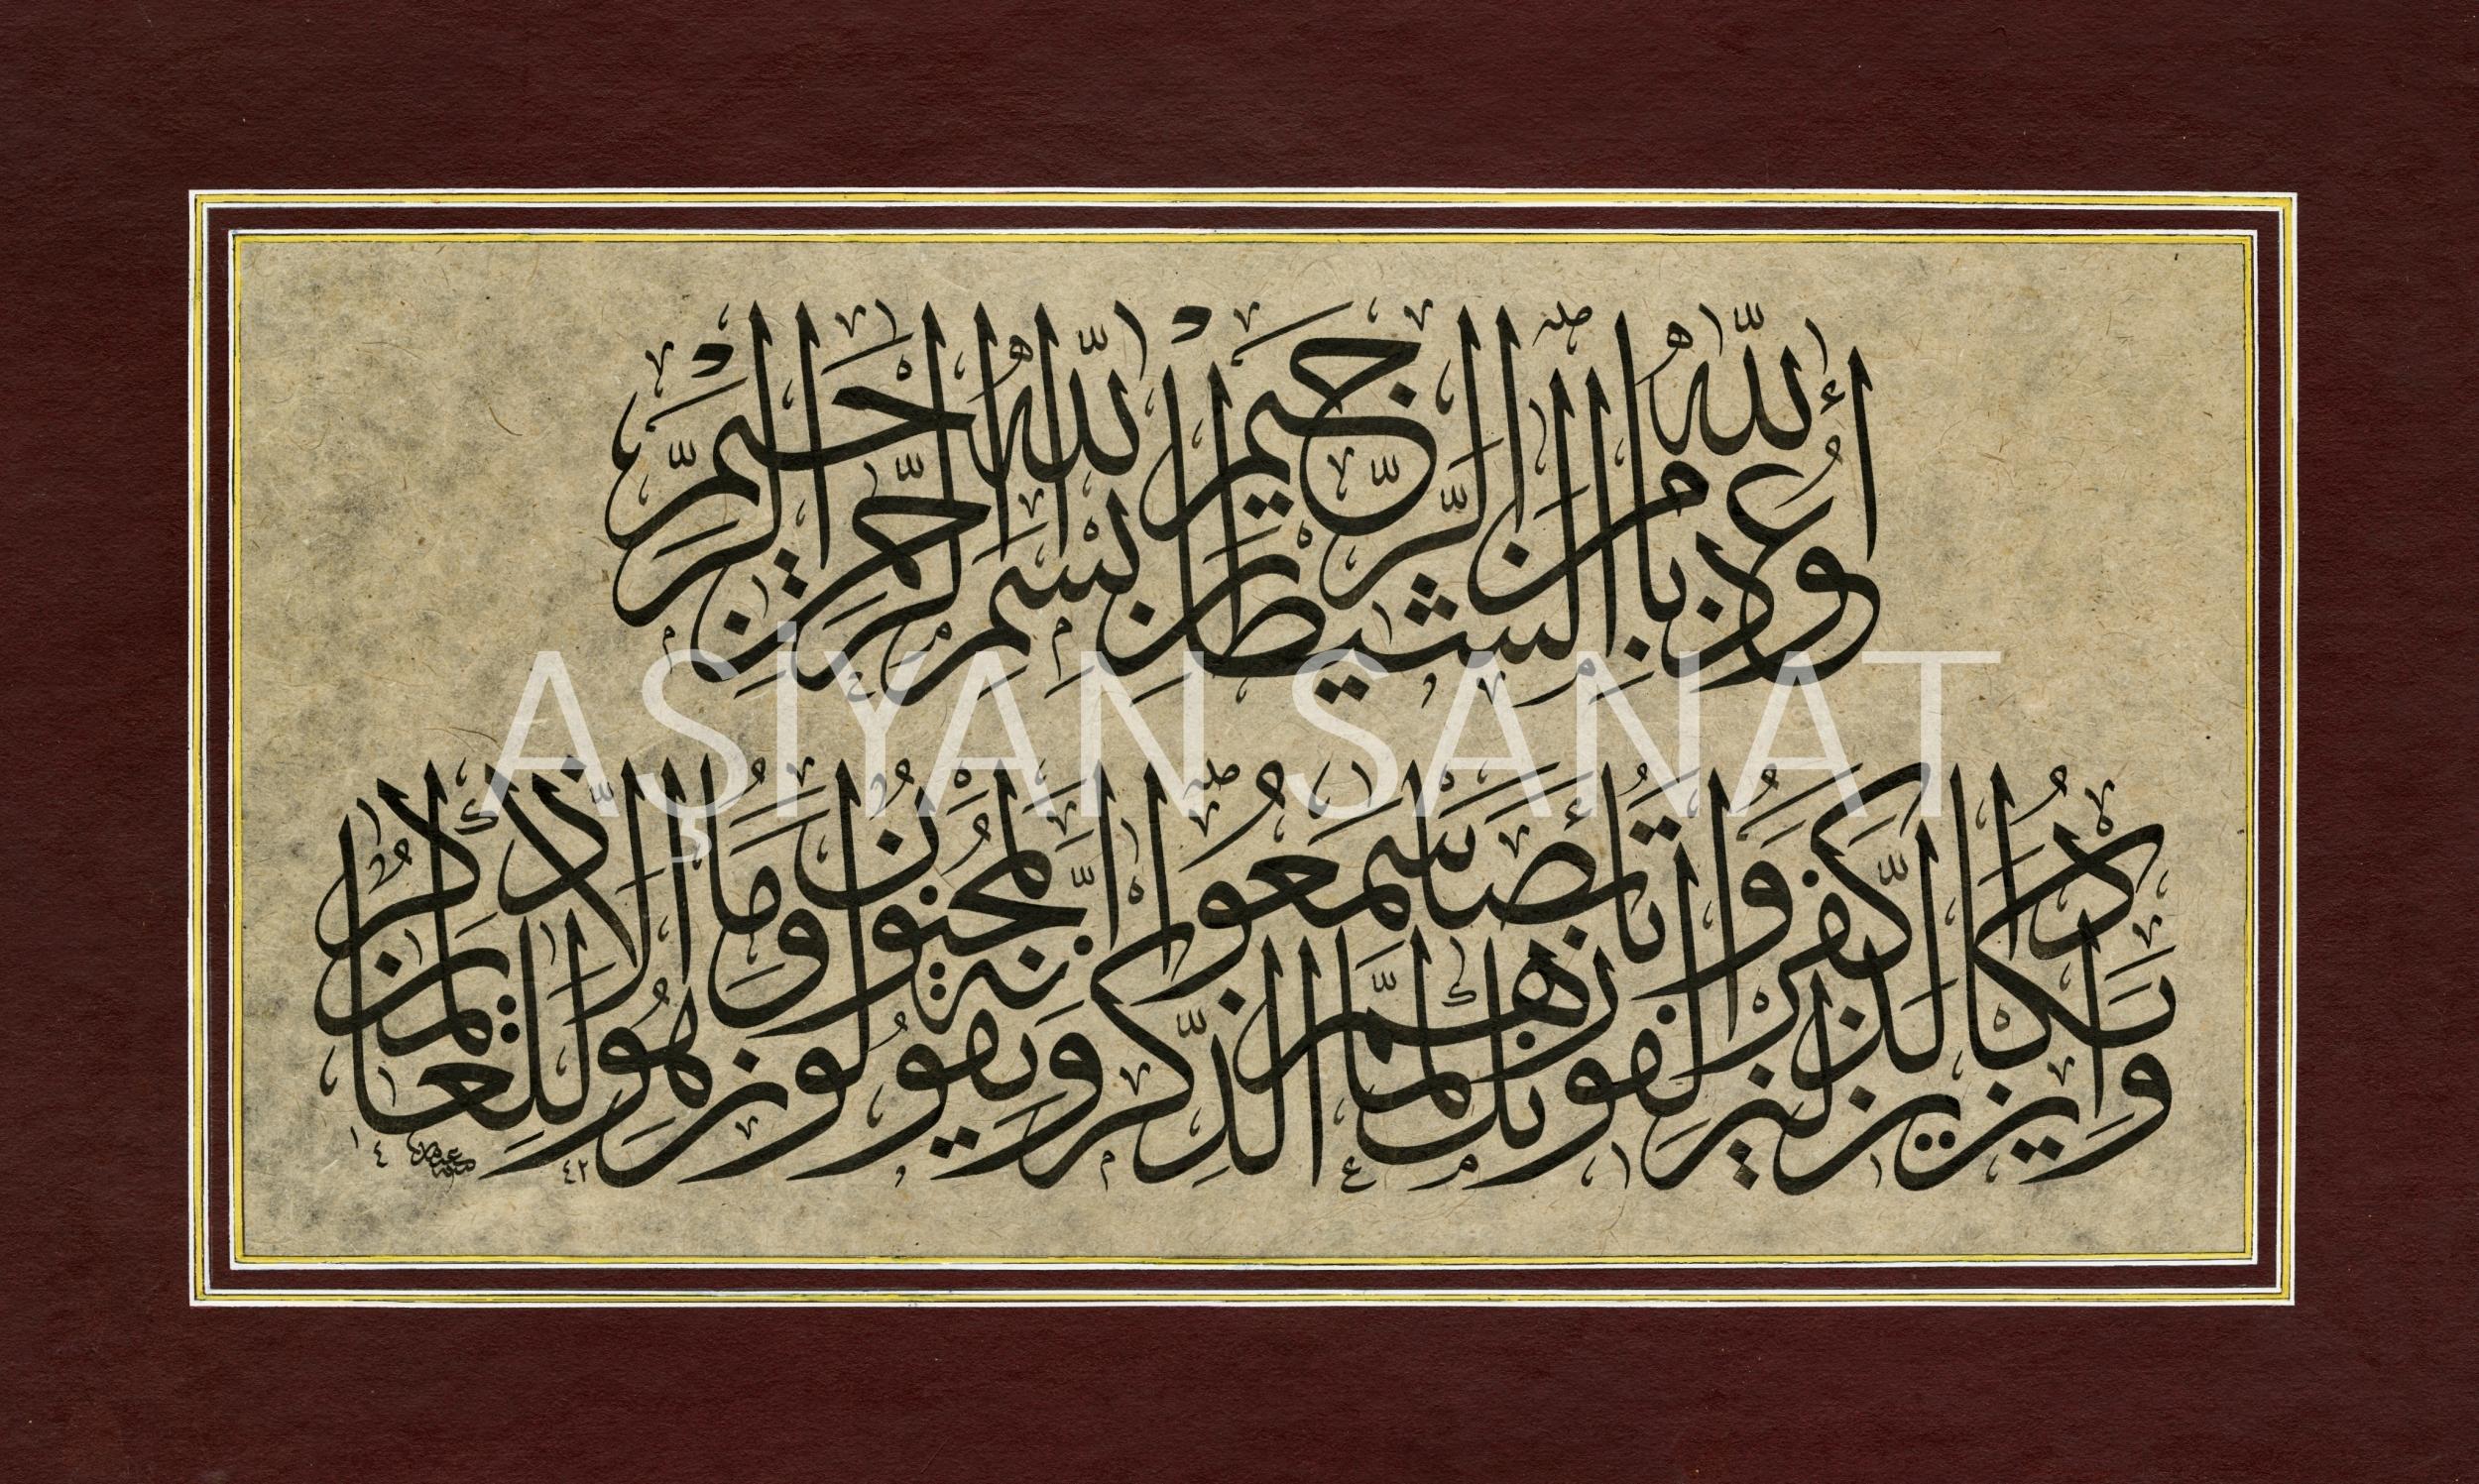 أعوذ بالله من الشيطان الرجيم بسم الله الرحمن الرحيم
وإن يكاد الذين كفروا ليزلقونك بأبصارهم لما سمعوا الذكر ويقولون إنه لمجنون وما هو إلا ذكر للعالمين
ASİYAN SANAT